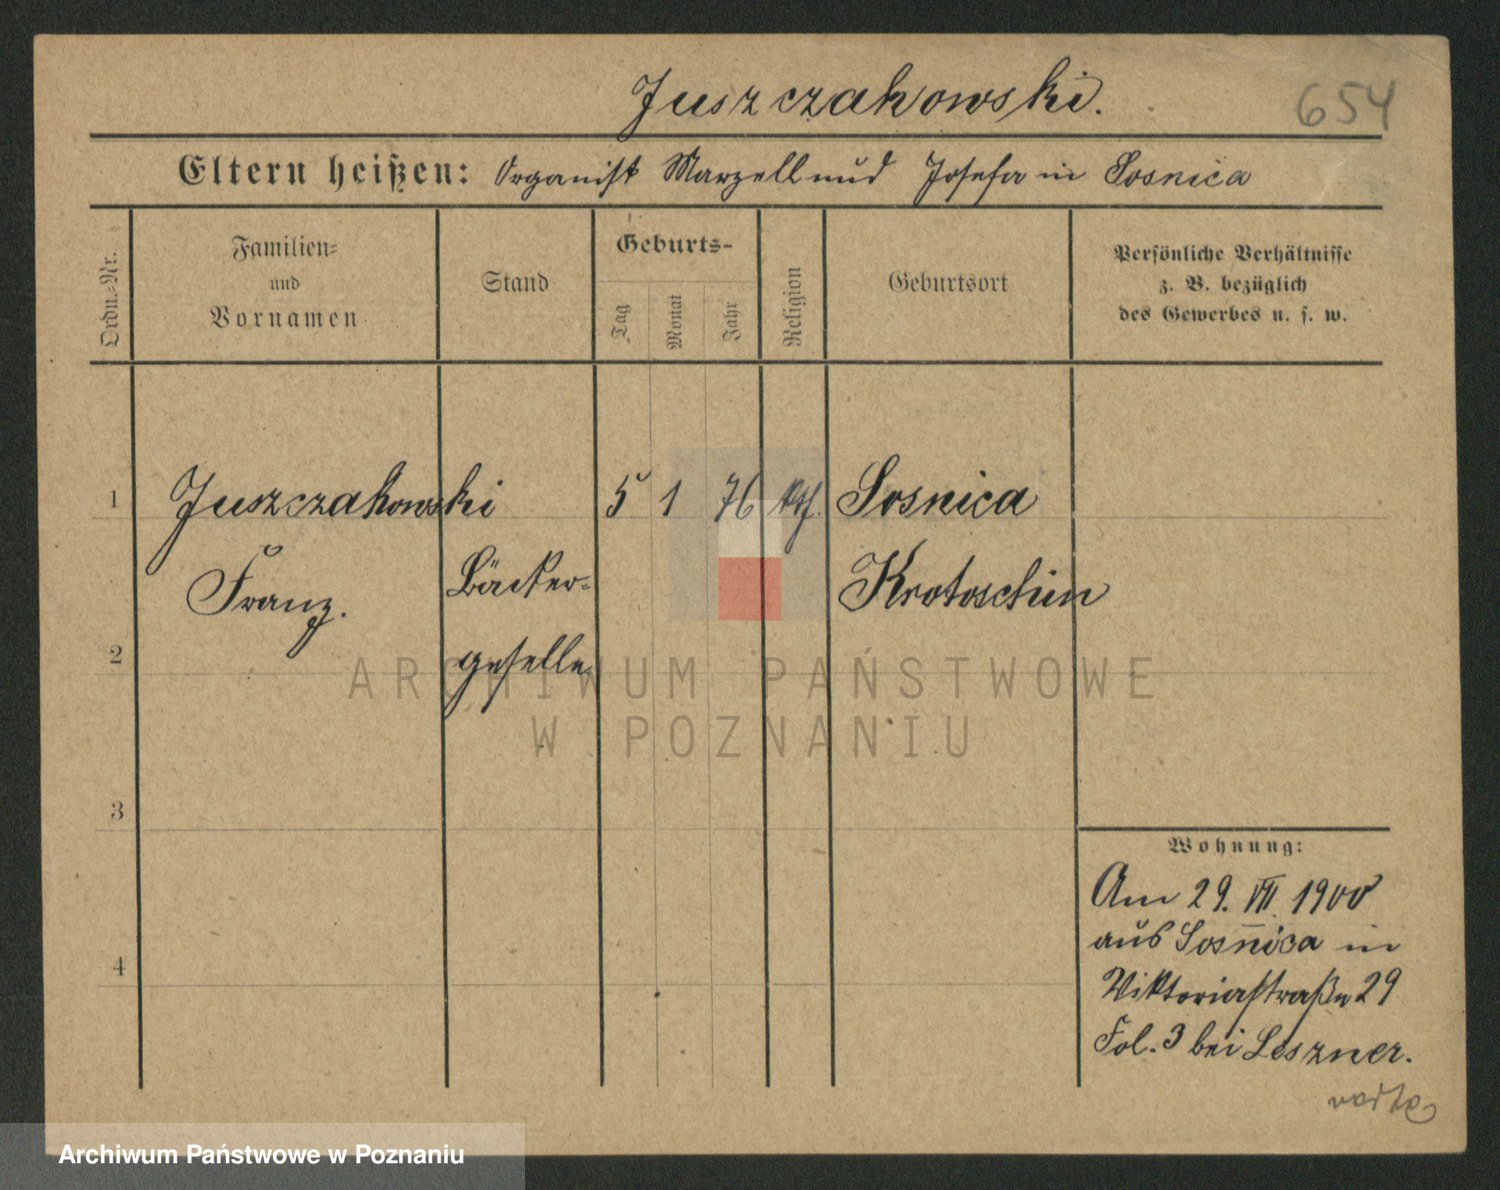 Juszczakowski.
654
Eltern heißen: Organist Marzell und Josefa in Sosnica
Ordn.-Nr.
Familien-
und
Vornamen
Stand
Geburts-
Tag
Monat
Jahr
Religion
Geburtsort
Persönliche Verhältnisse
z. B. bezüglich
des Gewerbes u. s. w.
1 Juszczakowski 5 1 76 kth. Sosnica
Franz. Bäcker- Krotoschin
2 geselle
ARCHIWUM PAŃSTWOWE
W POZNANIU
3
Wohnung:
Am 29. VII. 1900
aus Sosnica in
4
Viktoriastraße 29
Fol. 3 bei Leszner.
Archiwum Państwowe w Poznaniu